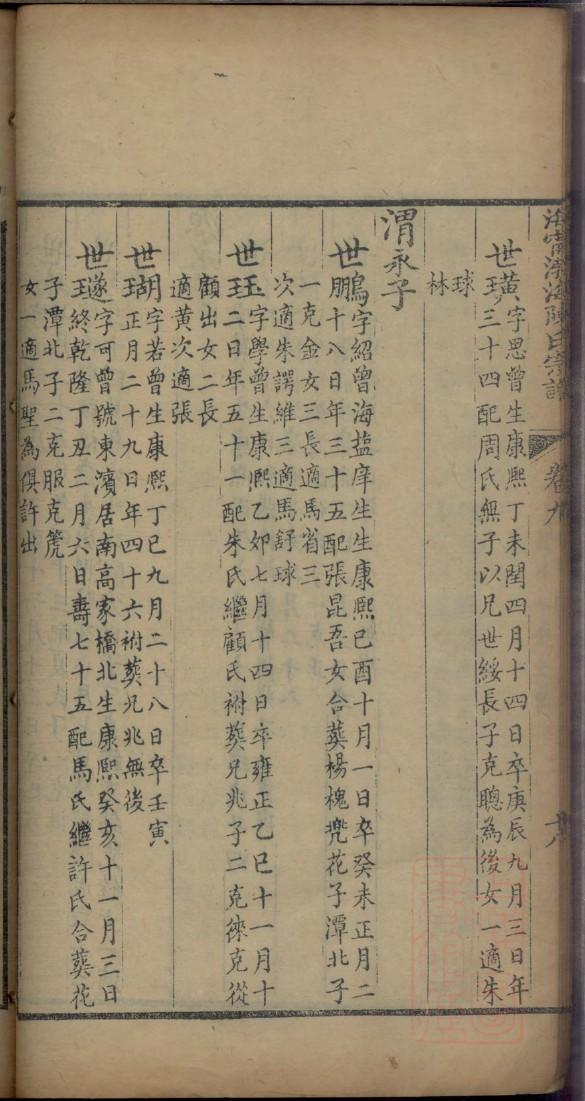 海甯渤海陳氏宗譜
卷九
世璜字思曾生康熙丁未閏四月十四日卒庚辰九月三日年
三十四配周氏無子以兄世綏長子克聰為後女一適朱
球
林
渭永子
世鵬字紹曾海盐庠生生康熙己酉十月一日卒癸未正月二
十八日年三十五配張昆吾女合葬楊槐兠花子潭北子
一克金女三長適馬省三
次適朱諤維三適馬舒球
世珏字學曾生康熙乙卯七月十四日卒雍正乙巳十一月十
二日年五十一配朱氏繼顧氏祔葬兄兆子二克徠克從
顧出女二長
適黄次適張
世瑚字若曾生康熙丁巳九月二十八日卒壬寅
正月二十九日年四十六祔葬兄兆無後
世璲字可曾號東濱居南高家橋北生康熙癸亥十一月三日
終乾隆丁丑二月六日壽七十五配馬氏繼許氏合葬花
子潭北子二克服克箎
女一適馬聖為俱許出